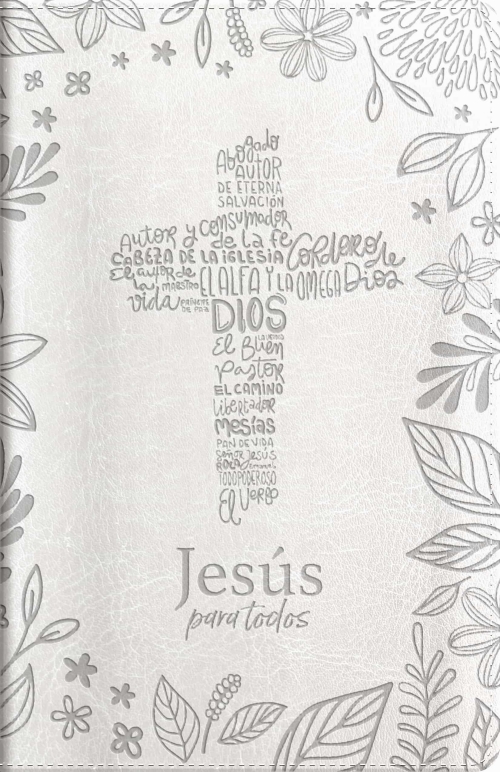 Abogado
AUTOR
DE ETERNA
SALVACIÓN
Autor y consumador
de la fe
CABEZA DE LA IGLESIA
Cordero de
Dios
El autor de
la vida
MAESTRO
PRÍNCIPE
DE PAZ
EL ALFA Y LA OMEGA
DIOS
El Buen
Pastor
EL CAMINO
libertador
Mesías
PAN DE VIDA
Señor Jesús
ROCA
TODOPODEROSO
El Verbo
Jesús
para todos